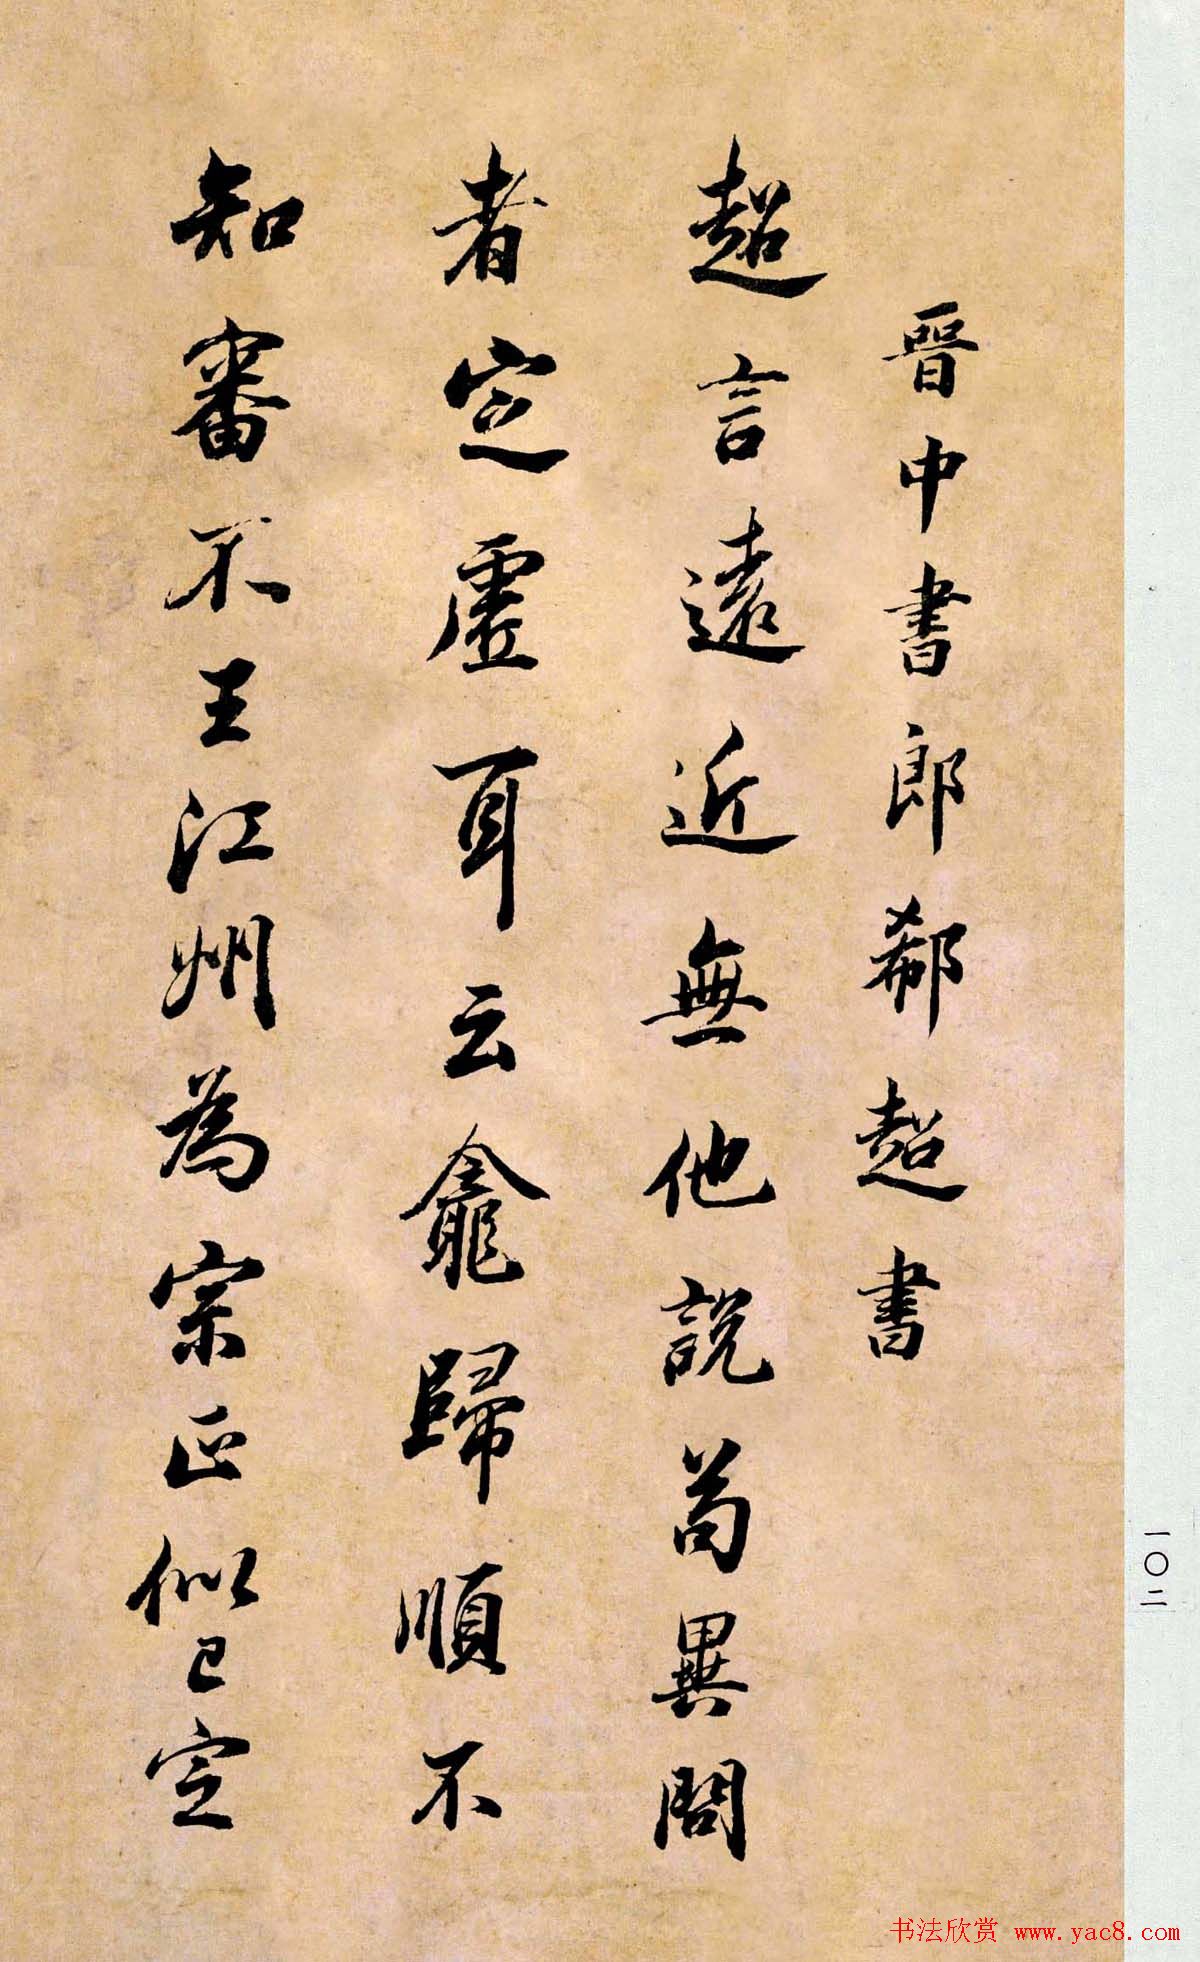 晉中書郎郗超書
超言遠近無他說苟異問
者定虛耳云龕歸順不
知審不王江州為宗正似已定
一〇二
书法欣赏 www.yac8.com